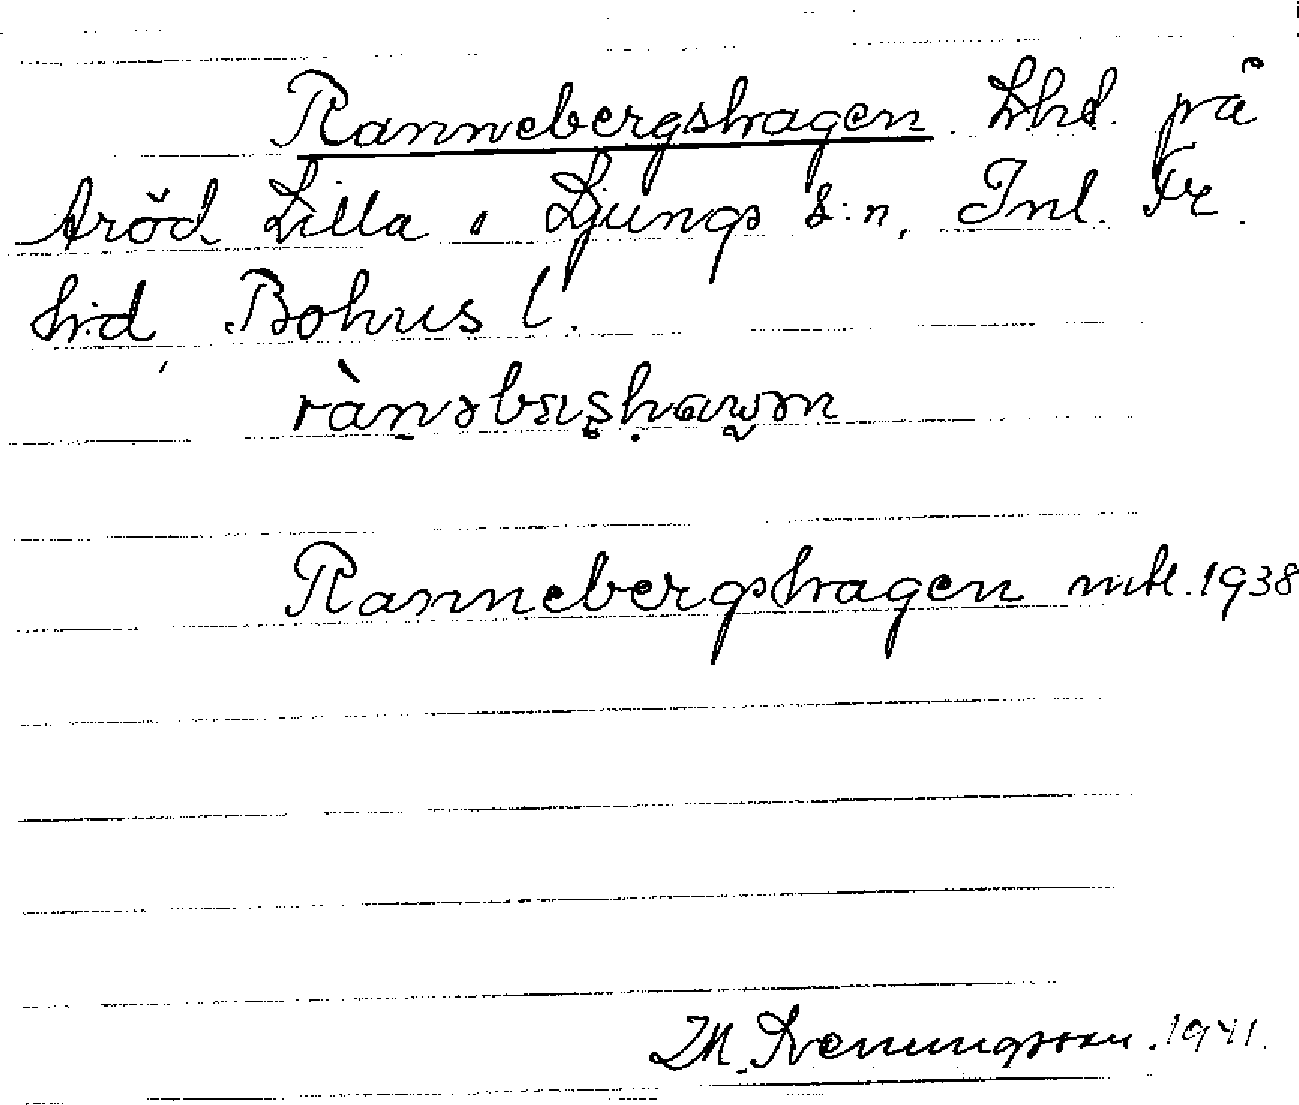 Rannebergshagen. Lhd. på
Aröd Lilla i Ljungs s:n, Inl. Fr.
hd, Bohus l.
rànəbæshagən
Rannebergshagen mtl. 1938
Svenungsson. 1941.